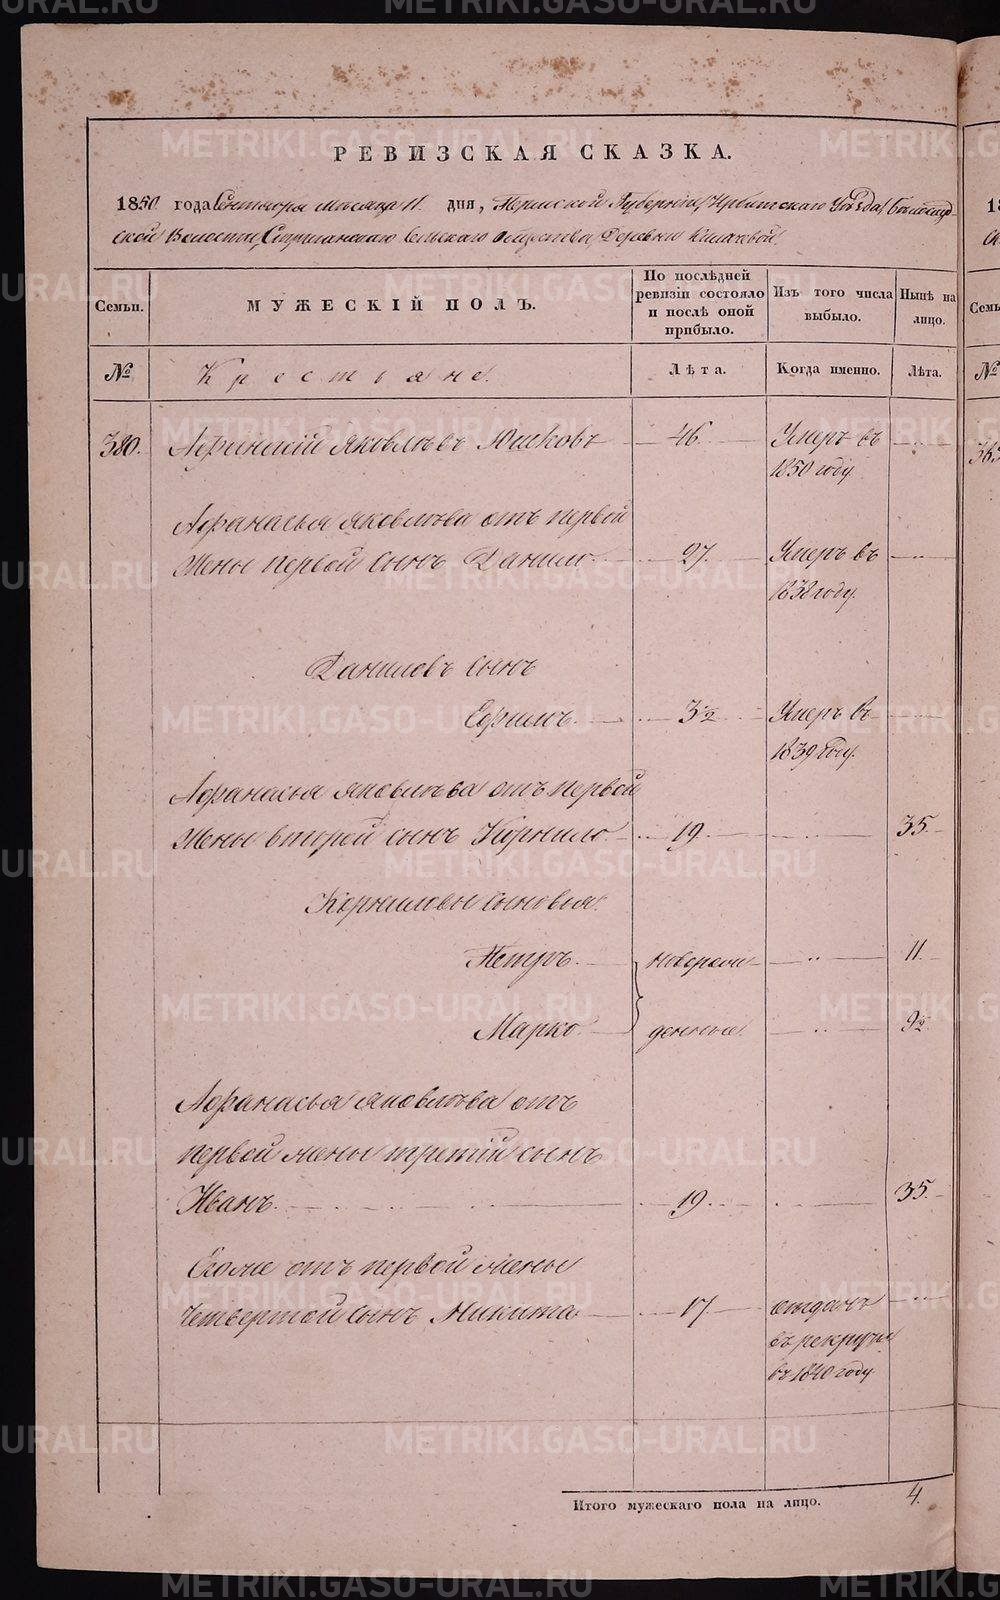 РЕВИЗСКАЯ СКАЗКА.
1850 года Сентября месяца 11 дня, Пермской Губернии, Ирбитскаго Уѣзда,
ской Волости, Сельскаго Общества, Деревни
Семьи.
МУЖЕСКІЙ ПОЛЪ.
По послѣдней ревизіи состояло и послѣ оной прибыло.
Изъ того числа выбыло.
Нынѣ на лицо.
№
Крестьяне.
Лѣта.
Когда именно.
Лѣта.
380. Афанасій Яковлевъ Юшковъ 46. Умеръ въ
1850 году.
Афанасья Яковлева отъ первой
жены первой сынъ Данило 27. Умеръ въ
1838 году.
Даниловъ сынъ
Ефимъ. 3½ Умеръ въ
1839 году.
Афанасья Яковлева отъ первой
жены второй сынъ Корнило 19. 35.
Корниловы сыновья.
Петръ. новорож 11.
Марко. денные. 9½
Афанасья Яковлева отъ
первой жены третій сынъ
Иванъ. 19. 35.
Егоже отъ первой жены
четвертой сынъ Никита 17 отданъ
въ рекруты
въ 1840 году.
Итого мужескаго пола на лицо. 4.
METRIKI.GASO-URAL.RU